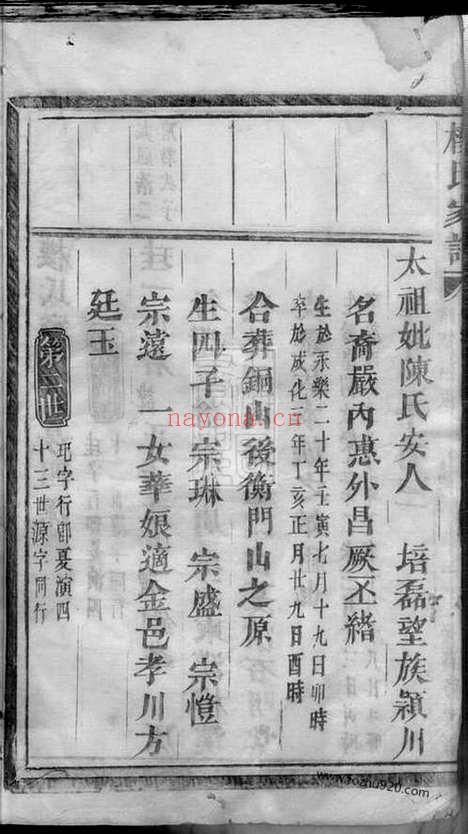 楊氏家譜
太祖妣陳氏安人 培磊望族潁川
名裔嚴內惠外昌厥丕緒
生於永樂二十年壬寅七月十九日卯時
卒於成化三年丁亥正月廿九日酉時
合葬銅山後衡門山之原
生四子 宗琳 宗盛 宗愷
宗遠 一女華娘適金邑孝川方
廷玉
第二世
玘字行即夏演四
十三世源字同行
nayona.cn
www.foxhu920.com